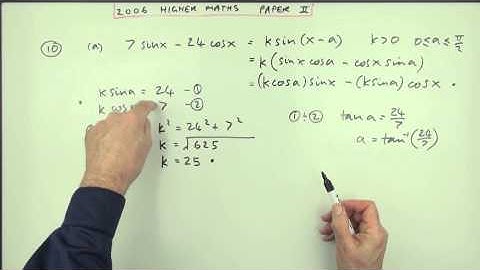 2006 HIGHER MATHS PAPER II
⑩ (a) 7 sinx - 24 cosx = k sin (x - a) k > 0 0 ≤ a ≤ π/2
= k (sinx cosa - cosx sina)
= (k cosa) sinx - (k sina) cosx
k sina = 24 - ①
k cos 7 - ②
k² = 24² + 7²
k = √625
k = 25
① ÷ ② tan a = 24/7
a = tan⁻¹(24/7)